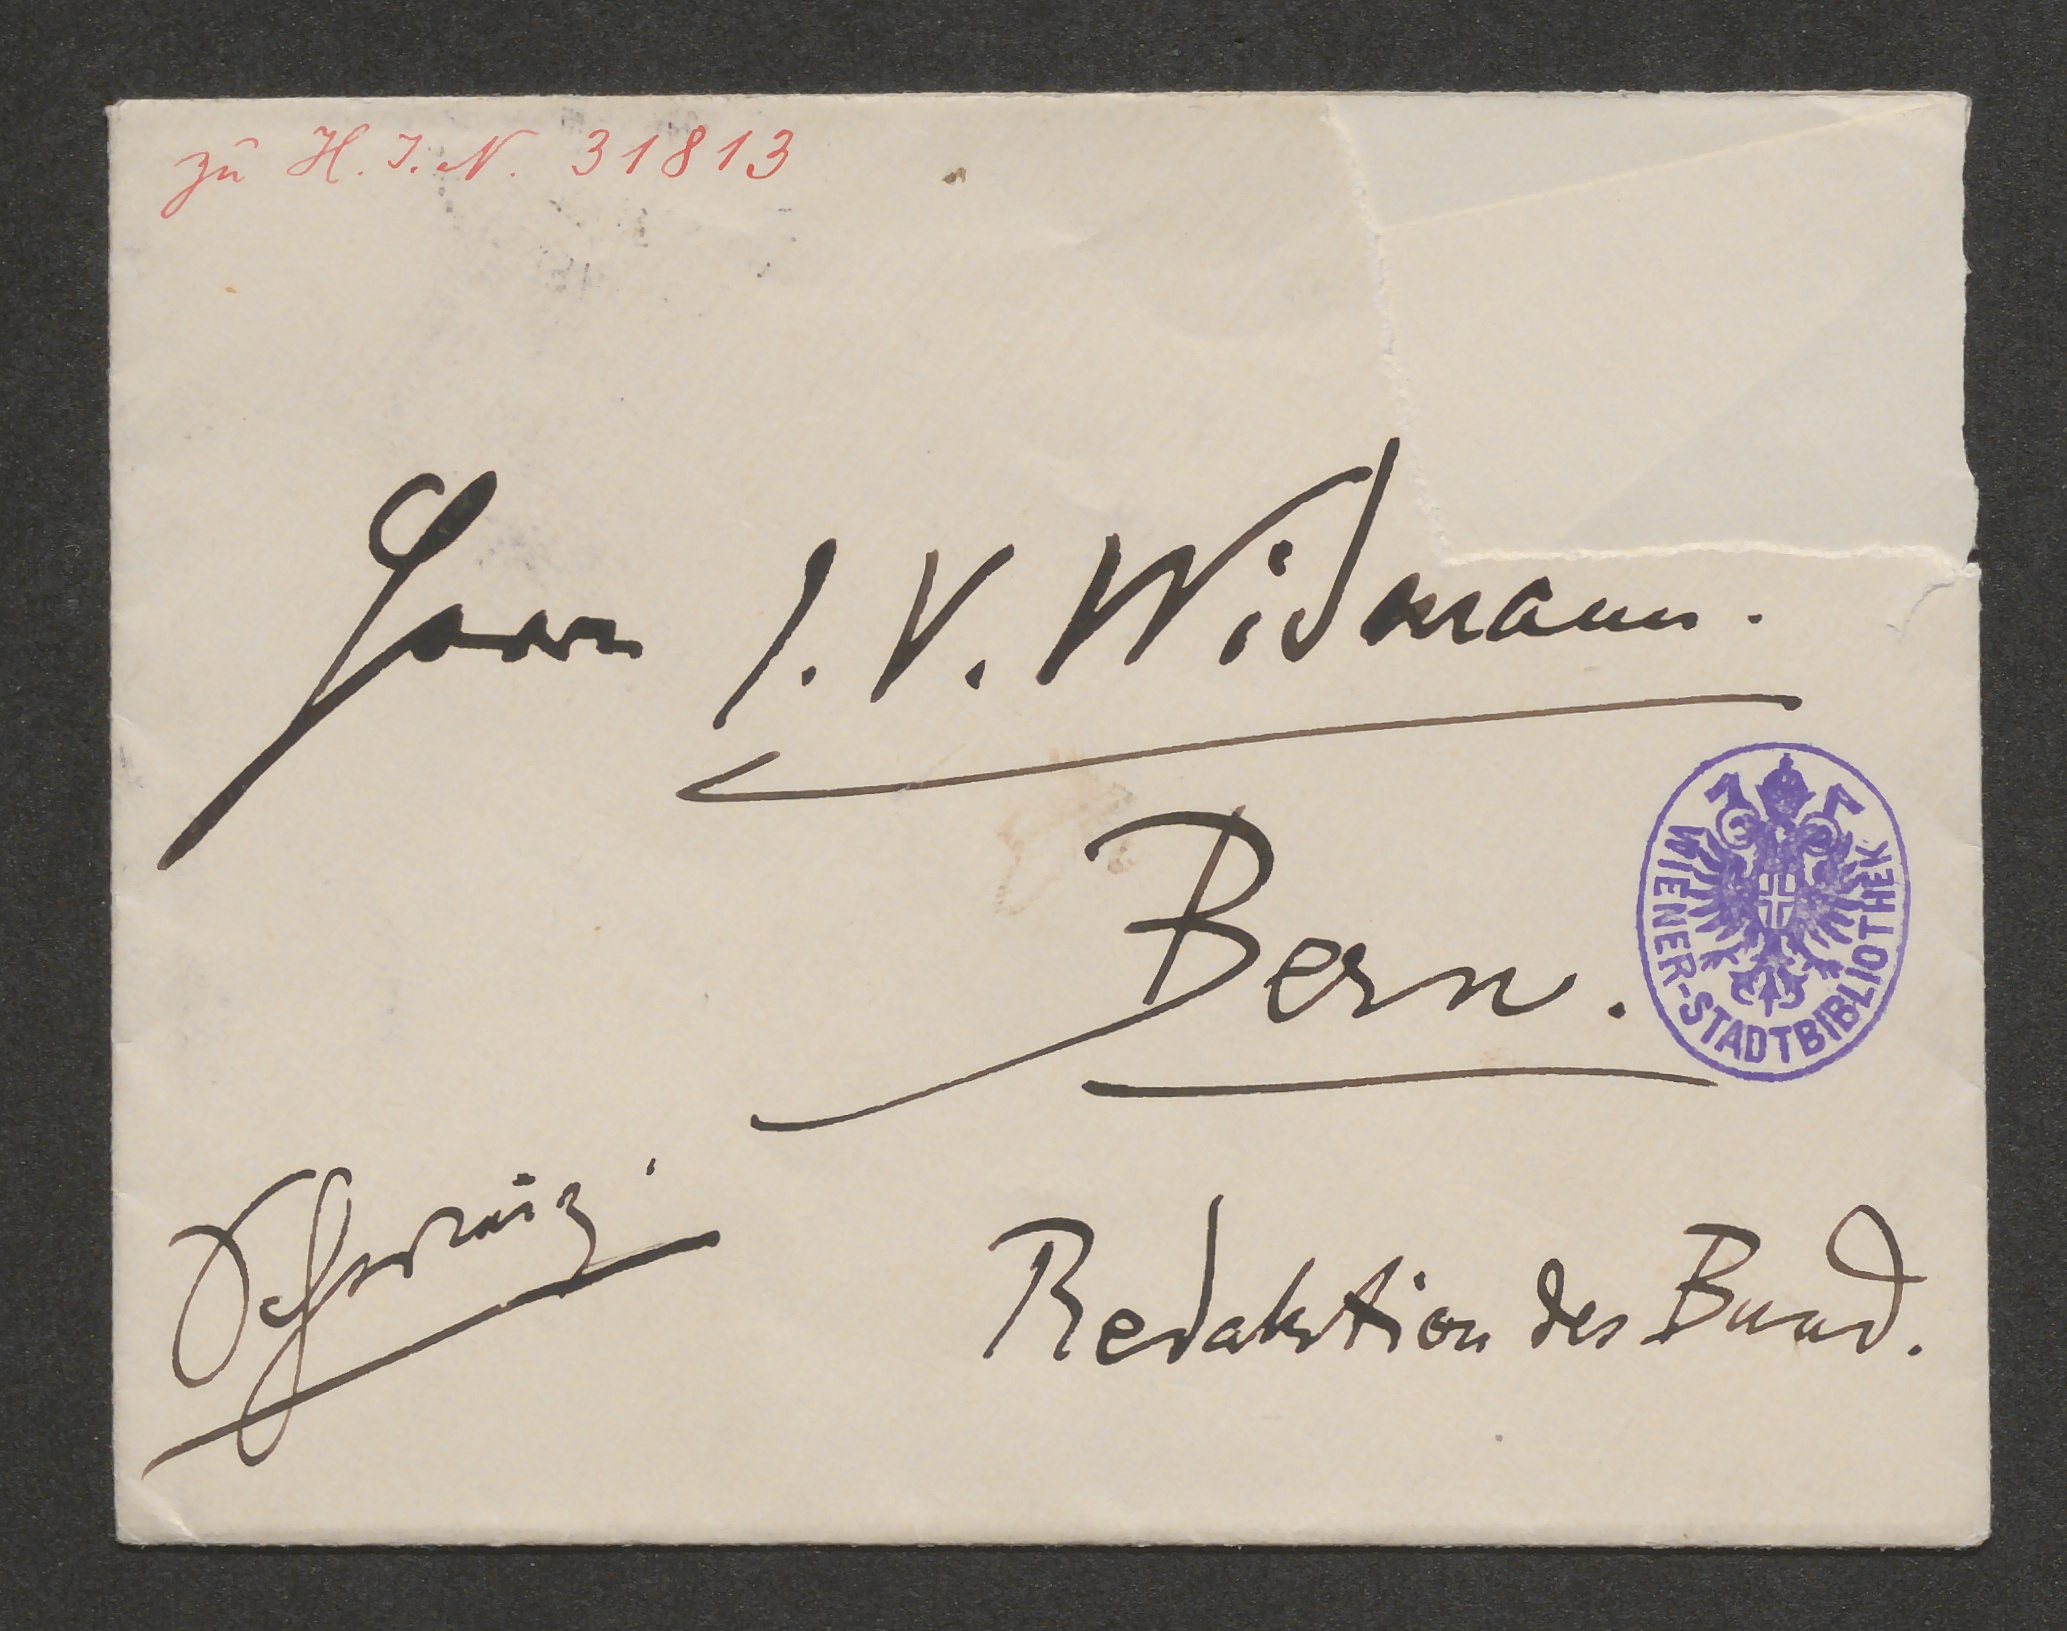 zu H. I. N. 31813
Herrn J. V. Widmann.
Bern.
WIENER-STADTBIBLIOTHEK
Schweiz.
Redaktion des Bund.